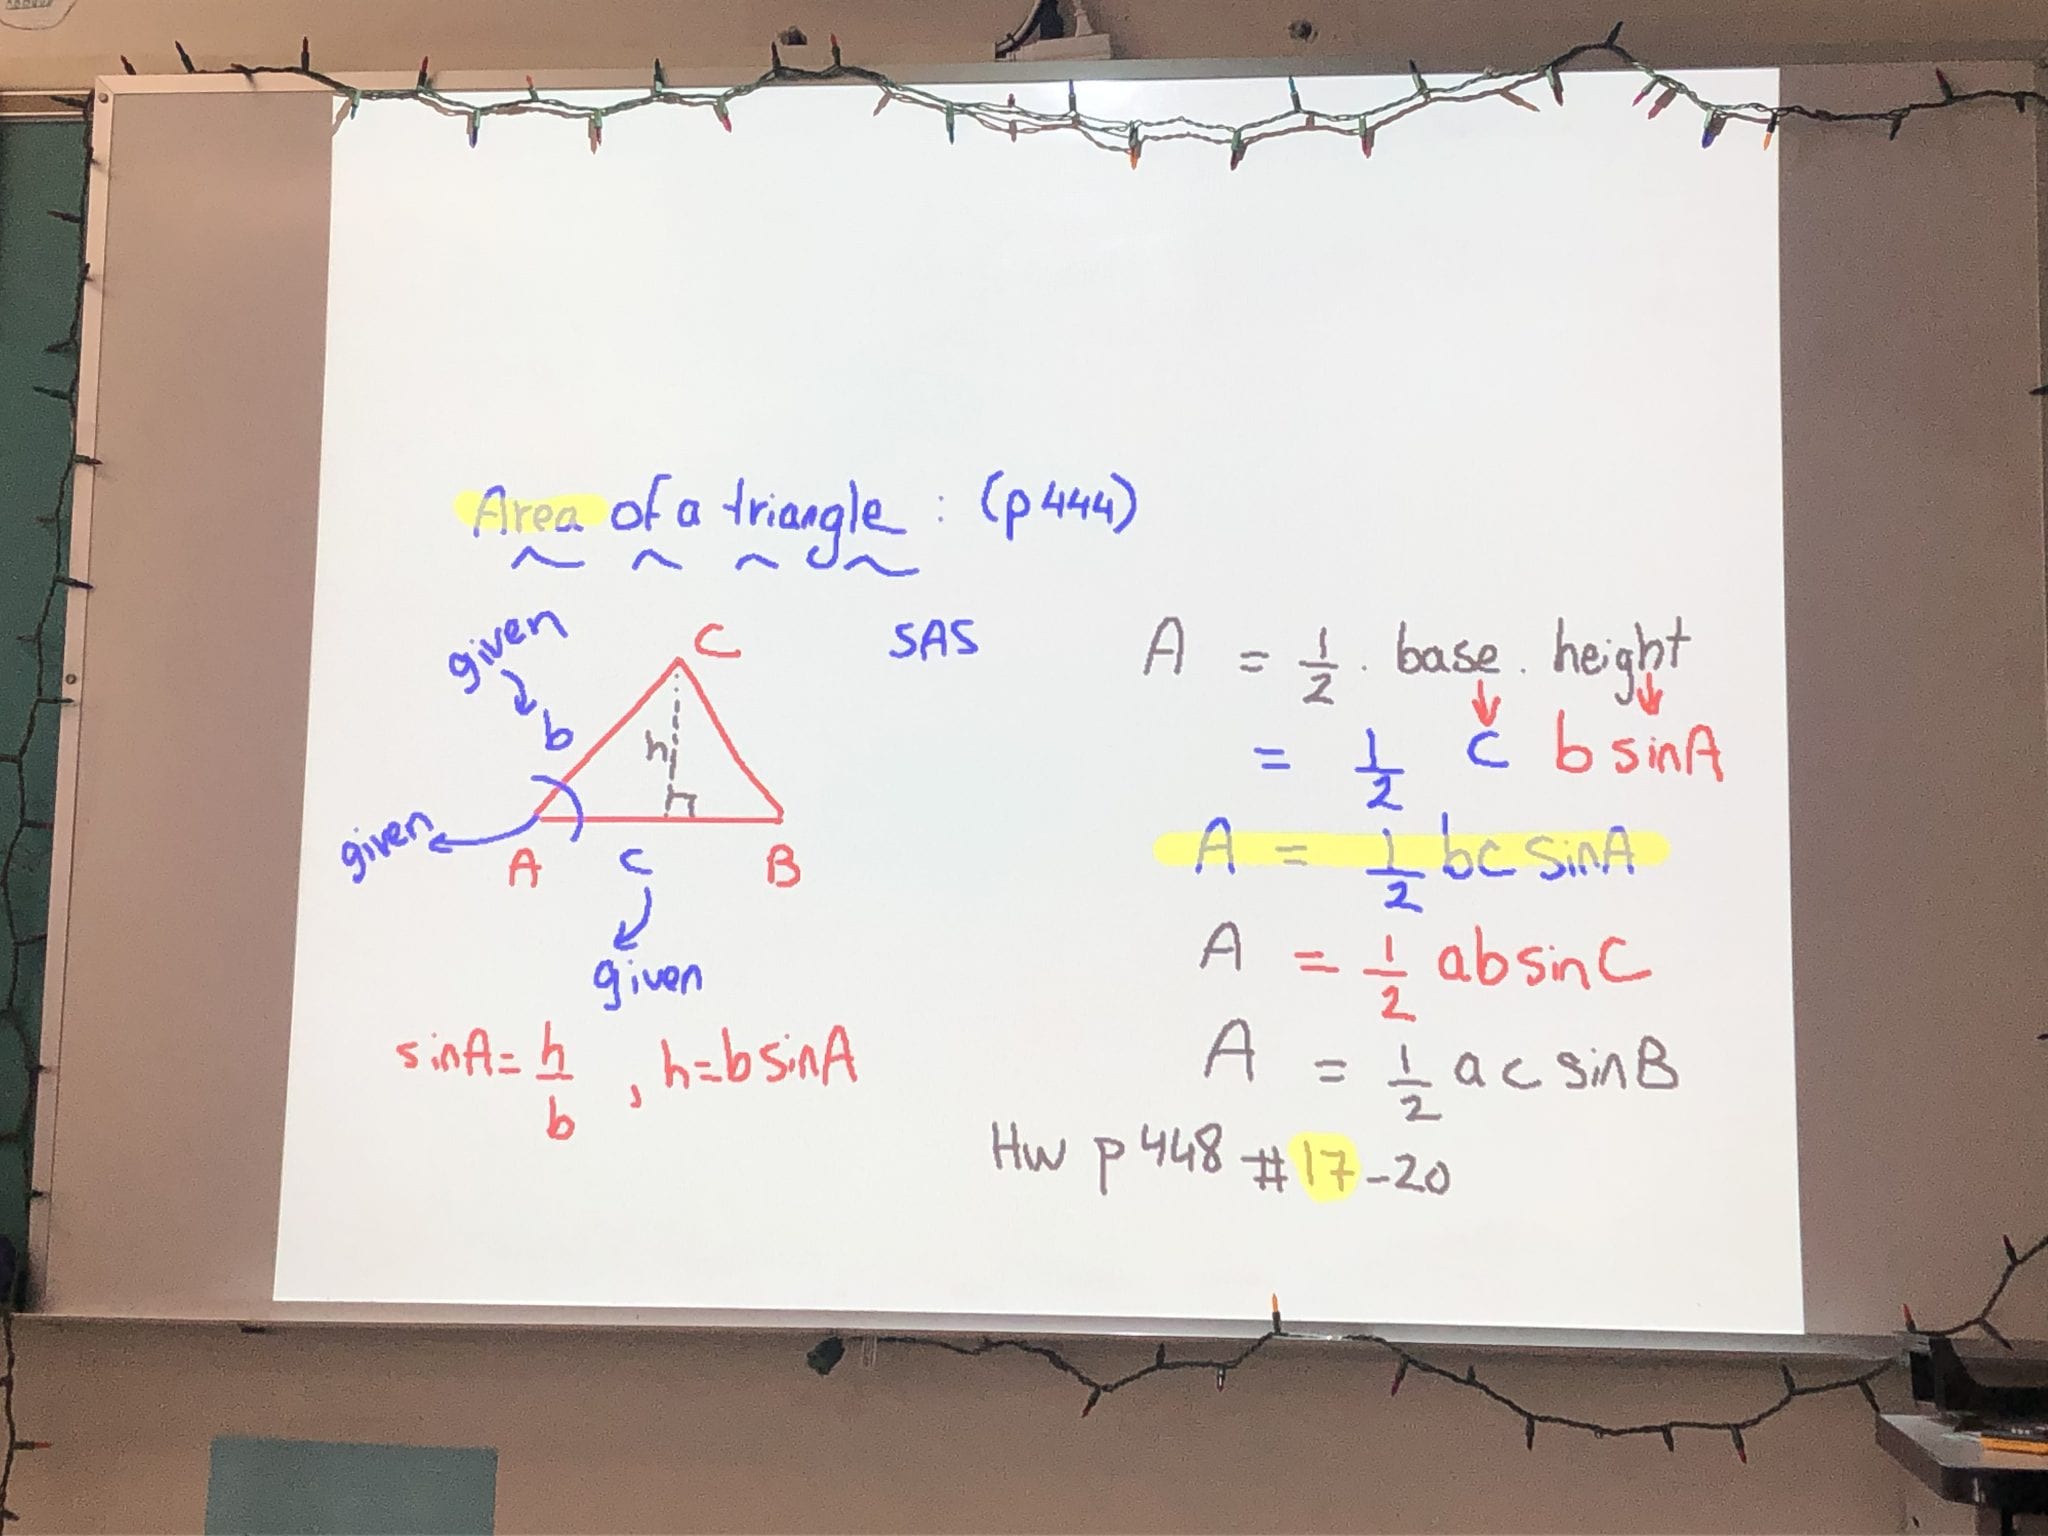 Area of a triangle : (p444)
given
b
C
h
given
A
c
B
given
SAS
sinA = h/b , h=bsinA
A = 1/2 . base . height
= 1/2 c b sinA
A = 1/2 bc sinA
A = 1/2 ab sinC
A = 1/2 ac sinB
Hw p448 #17-20